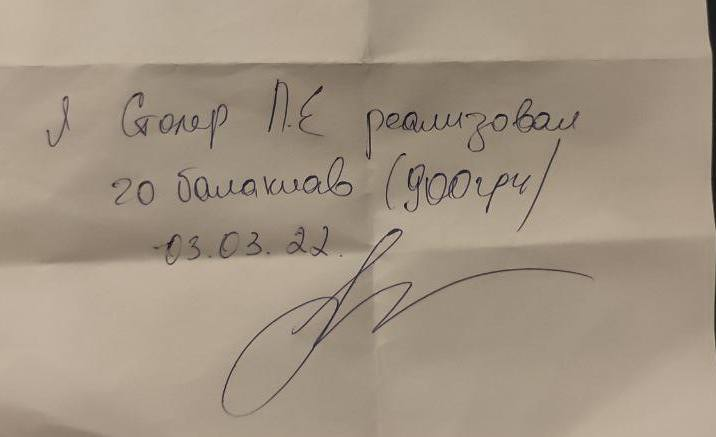 Я Столер П.Е реализовал
20 балаклав (900грн)
03.03.22.